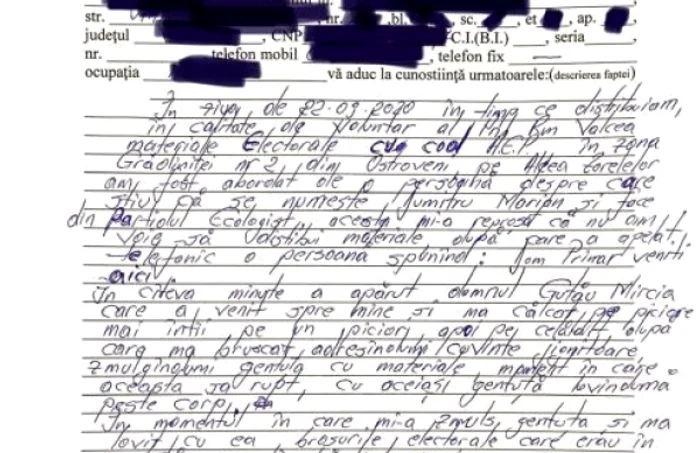 str. , nr. , bl. , sc. , et , ap.
județul , CNP C.I.(B.I.) , seria
nr. telefon mobil , telefon fix —
ocupația vă aduc la cunostiință urmatoarele:(descrierea faptei)
În ziua de 22.09.2020 în timp ce distribuiam,
în calitate de Voluntar al PNL Rm Valcea
materiale Electorale cu cod A.E.P. în zona
Grădiniței nr 2, din Ostroveni pe Aleea
am fost abordat de o persoană despre care
știu că se numește Dumitru Marian și face
din Partidul Ecologist, acesta mi-a reproșat că nu am
voie să distibui materiale după care a apelat
telefonic o persoana spunînd: Dom Primar veniti
aici
În cîteva minute a apărut domnul Gutău Mircia
care a venit spre mine și ma călcat pe picioare
mai întîi pe un picior apoi pe celălalt după
care ma bruscat adresîndumi cuvinte jignitoare,
zmulgîndumi gentuța cu materiale moment în care
aceasta sa rupt, cu aceiași gentuță lovinduma
peste corp.
În momentul în care mi-a zmuls gentuta si ma
lovit cu ea, broșurile electorale care erau în